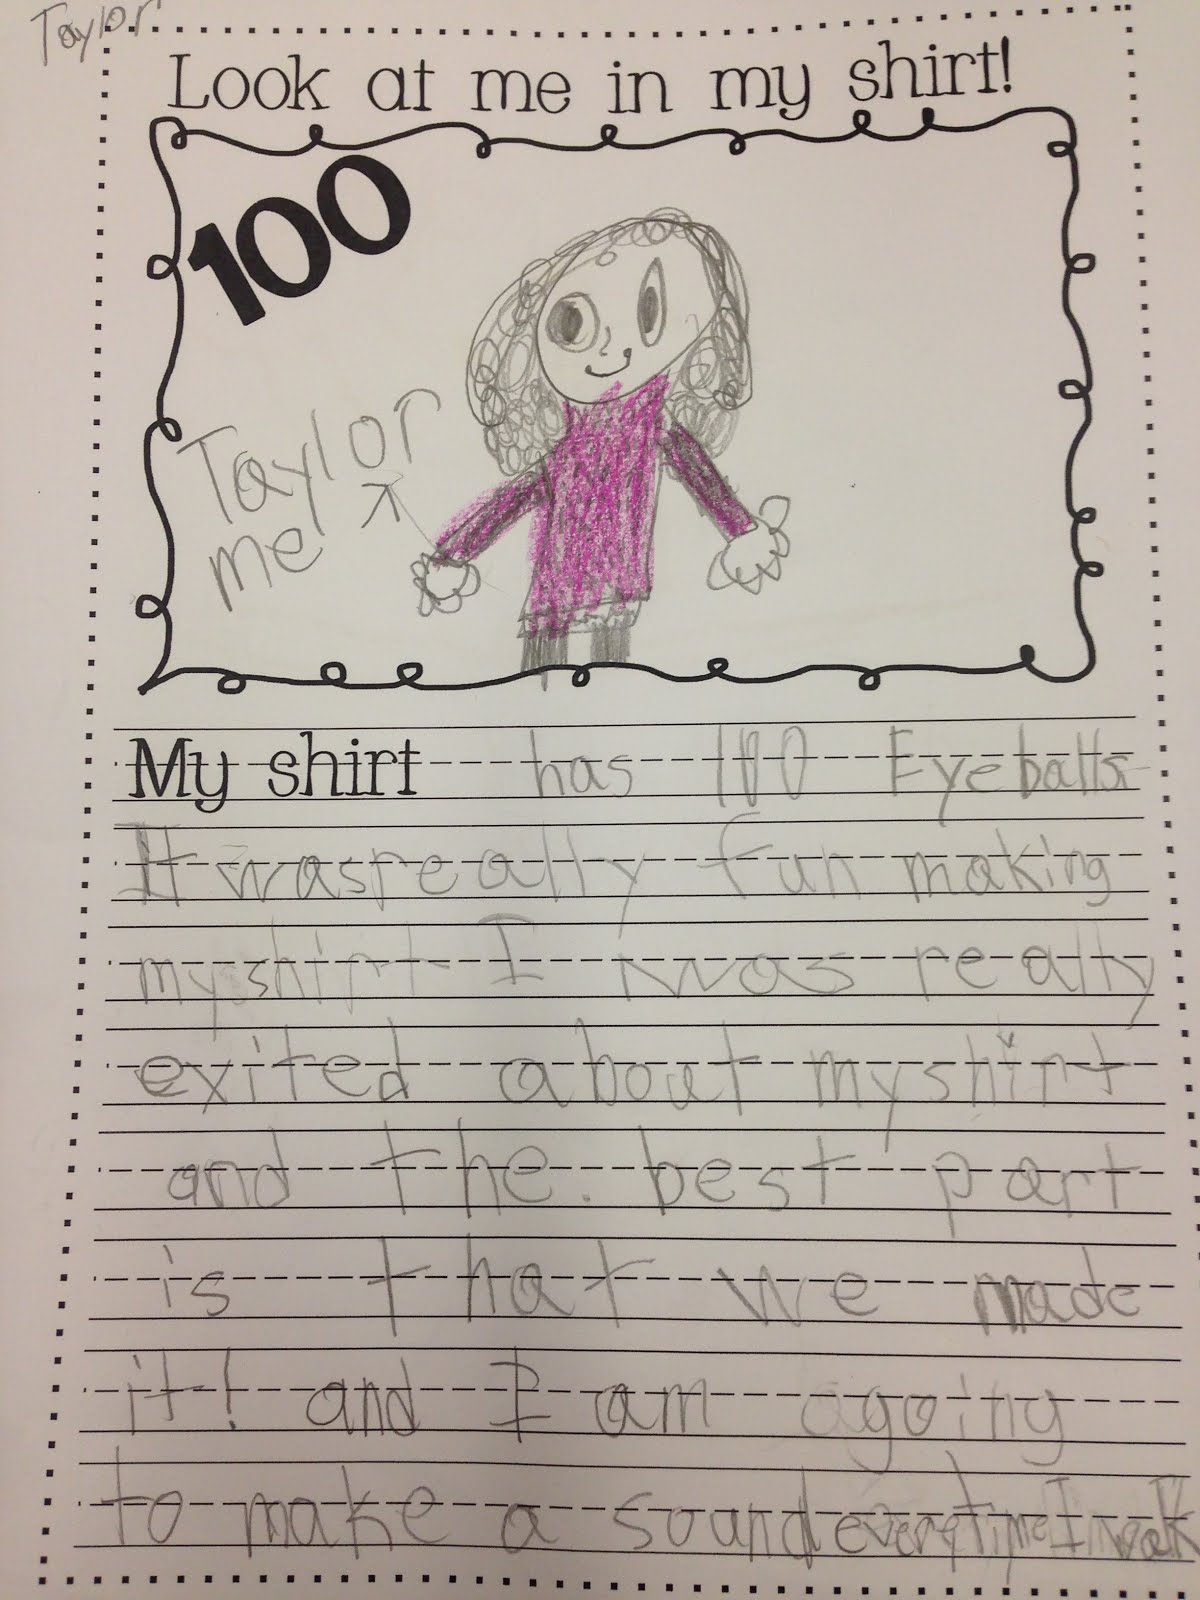 Taylor
Look at me in my shirt!
100
Taylor
me
My shirt has 100 Eyeballs
It was really fun making
my shirt I was really
exited about my shirt
and the. best part
is that we made
it! and I am going
to make a sound everytime I walk